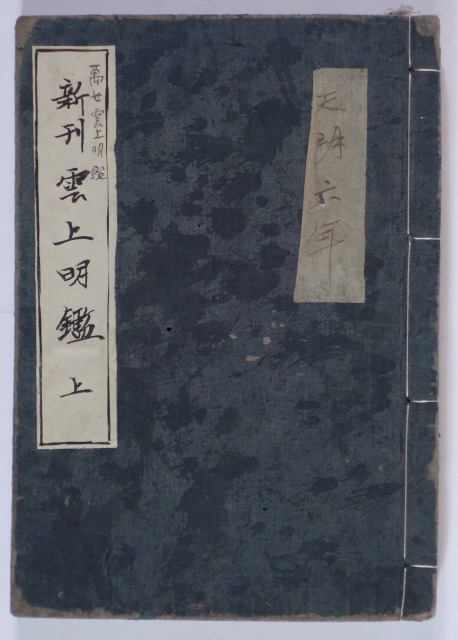 天明六年
萬世雲上明鑑
新刊雲上明鑑 上